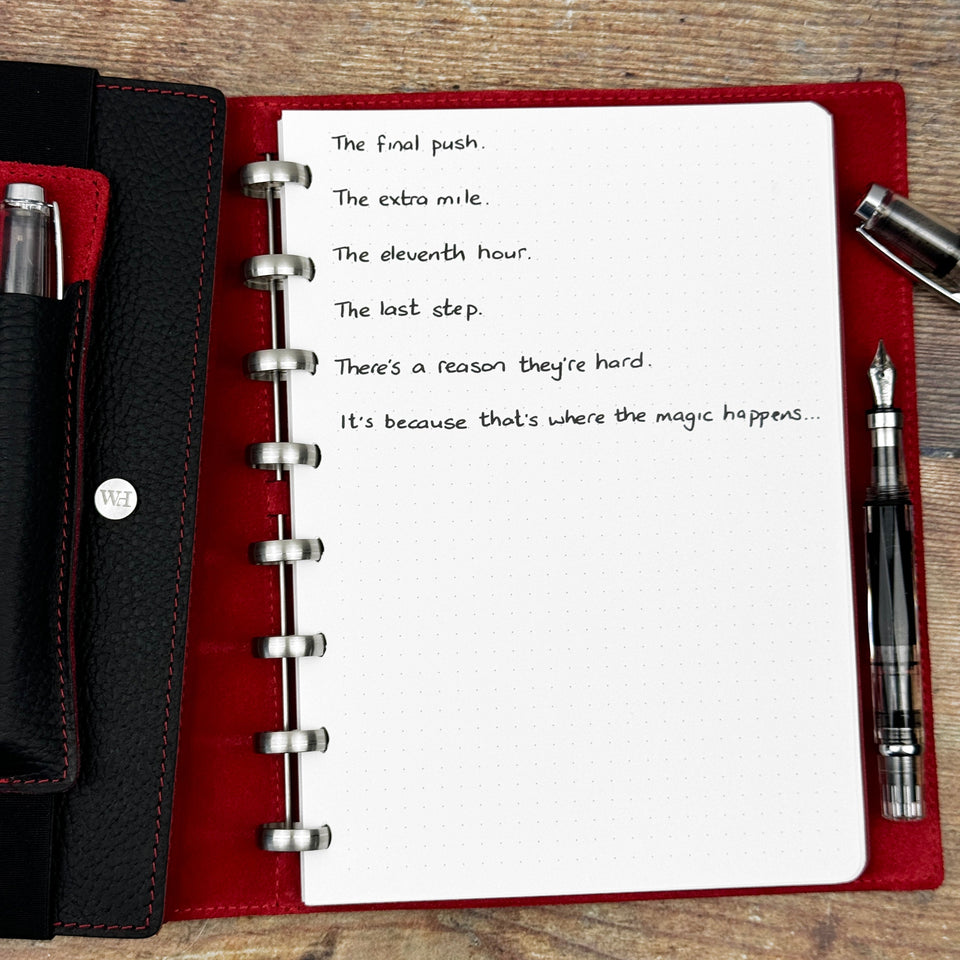 The final push.
The extra mile.
The eleventh hour.
The last step.
There's a reason they're hard.
It's because that's where the magic happens...
WH